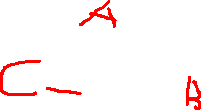 A
C- B